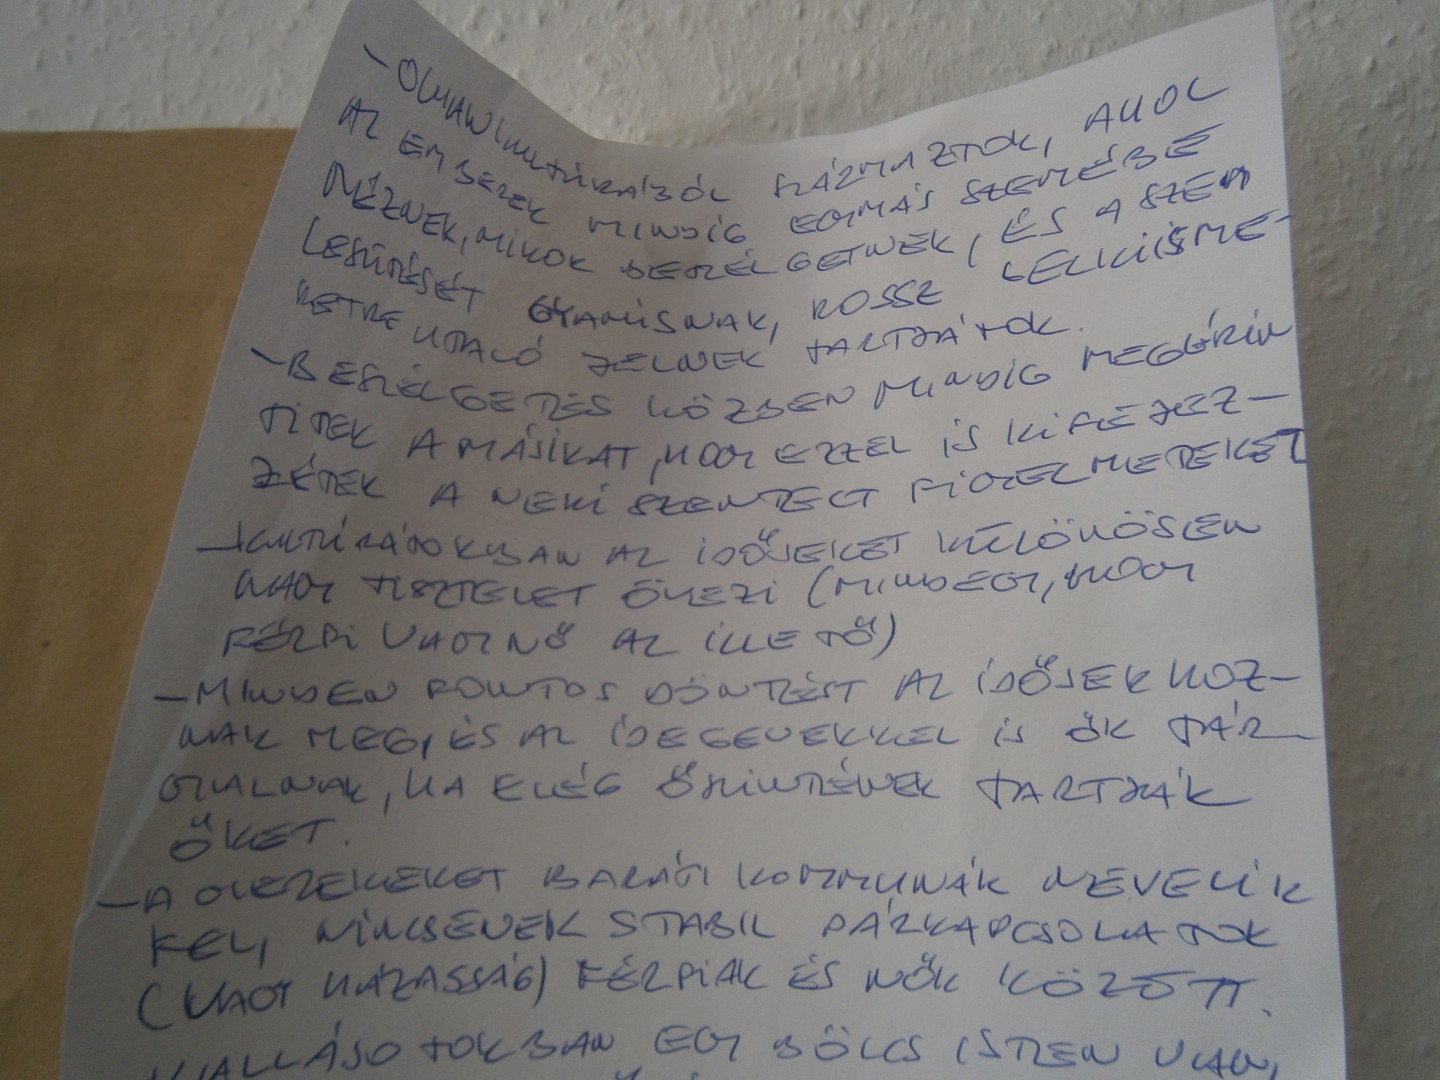 - OLYAN KULTÚRÁBÓL SZÁRMAZTOK, AHOL
AZ EMBEREK MINDIG EGYMÁS SZEMÉBE
NÉZNEK, MIKOR BESZÉLGETNEK, ÉS A SZEM
LESÜTÉSÉT GYANÚSNAK, ROSSZ LELKIISME-
RETRE UTALÓ JELNEK TARTJÁTOK.
- BESZÉLGETÉS KÖZBEN MINDIG MEGÉRIN
TITEK A MÁSIKAT, HOGY EZZEL IS KIFEJEZ-
ZÉTEK A NEKI SZENTELT FIGYELMETEKET
- KULTÚRÁTOKBAN AZ IDŐSEKET KÜLÖNÖSEN
NAGY TISZTELET ÖVEZI (MINDEGY, HOGY
FÉRFI VAGY NŐ AZ ILLETŐ)
- MINDEN FONTOS DÖNTÉST AZ IDŐSEK HOZ-
NAK MEG, ÉS AZ IDEGENEKKEL IS ŐK TÁR
GYALNAK, HA ELÉG ŐSZINTÉNEK TARTJÁK
ŐKET.
- A GYEREKEKET BARÁTI KOMMUNÁK NEVELIK
FEL, NINCSENEK STABIL PÁRKAPCSOLATOK
(VAGY HÁZASSÁG) FÉRFIAK ÉS NŐK KÖZÖTT.
VALLÁSOTOKBAN EGY BÖLCS ISTEN VAN,